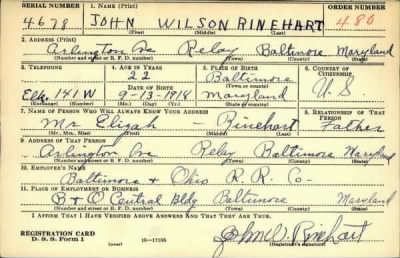 SERIAL NUMBER 1. NAME (Print) ORDER NUMBER
4678 JOHN WILSON RINEHART 480
(First) (Middle) (Last)
2. ADDRESS (Print)
Arlington Ave Relay Baltimore Maryland
(Number and street or R. F. D. number) (Town) (County) (State)
3. TELEPHONE 4. AGE IN YEARS 5. PLACE OF BIRTH 6. COUNTRY OF CITIZENSHIP
22 Baltimore
(Town or county)
DATE OF BIRTH
Elk. 141W 9-13-1918 Maryland U. S
(Exchange) (Number) (Mo.) (Day) (Yr.) (State or country)
7. NAME OF PERSON WHO WILL ALWAYS KNOW YOUR ADDRESS 8. RELATIONSHIP OF THAT PERSON
Mr Elijah — Rinehart Father
(Mr., Mrs., Miss) (First) (Middle) (Last)
9. ADDRESS OF THAT PERSON
Arlington Ave Relay Baltimore Maryland
(Number and street or R. F. D. number) (Town) (County) (State)
10. EMPLOYER'S NAME
Baltimore & Ohio R. R. Co—
11. PLACE OF EMPLOYMENT OR BUSINESS
B & O Central Bldg Baltimore Maryland
(Number and street or R. F. D. number) (Town) (County) (State)
I AFFIRM THAT I HAVE VERIFIED ABOVE ANSWERS AND THAT THEY ARE TRUE.
REGISTRATION CARD
D. S. S. Form 1 (over) 16—17105 John W. Rinehart
(Registrant's signature)